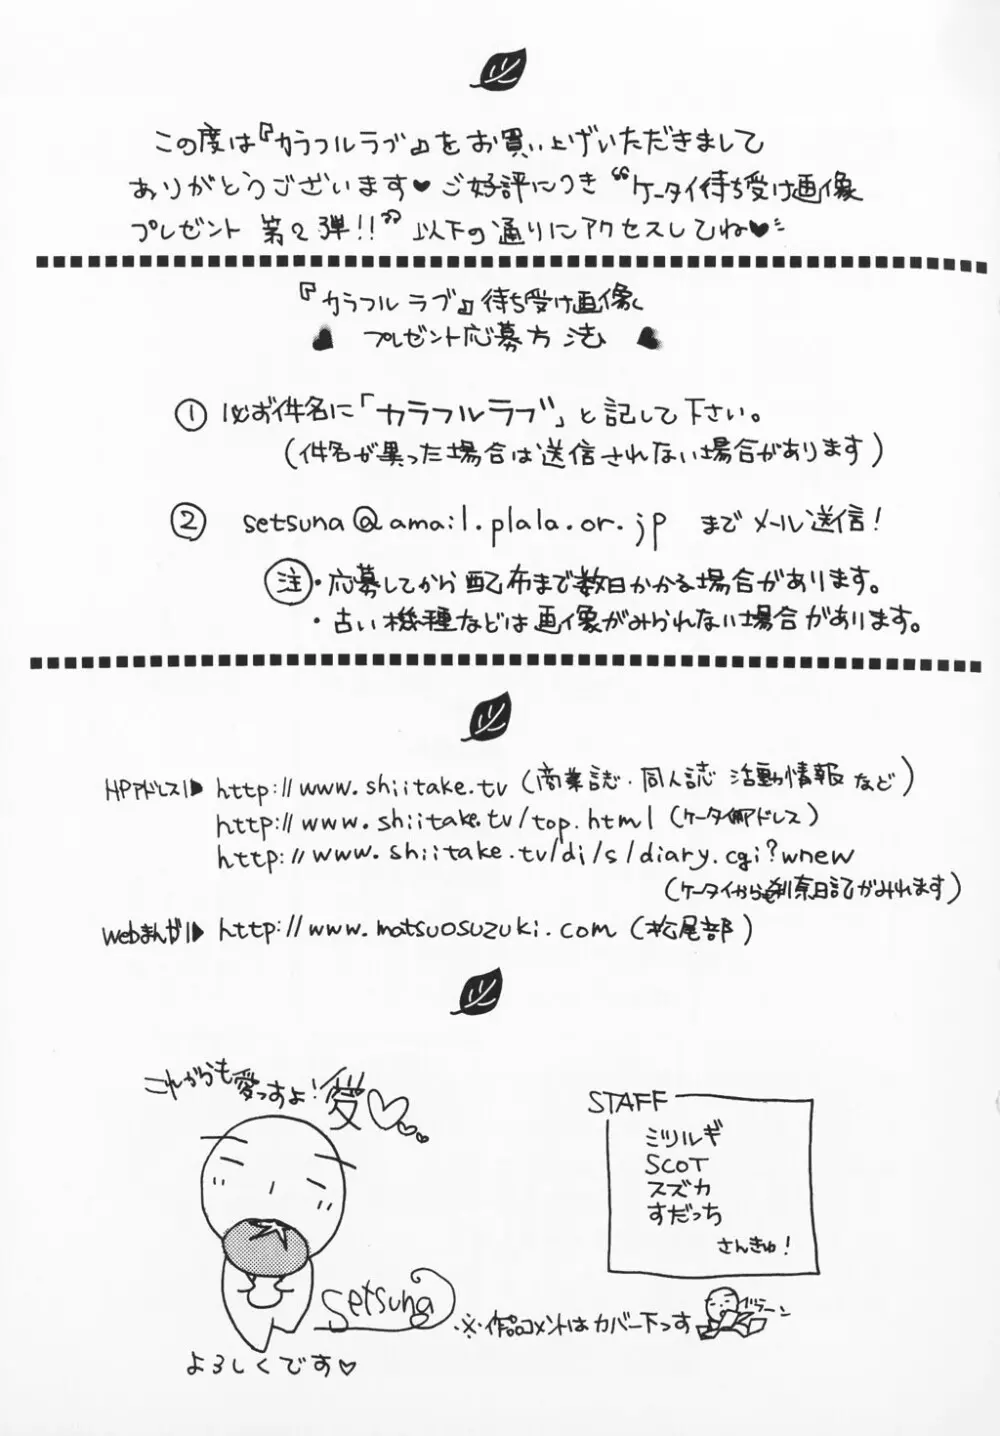 この度は『カラフルラブ』をお買い上げいただきまして
ありがとうございます♥ご好評につき“ケータイ待ち受け画像
プレゼント 第2弾!!”以下の通りにアクセスしてね♥
『カラフルラブ』待ち受け画像
プレゼント応募方法
① 必ず件名に「カラフルラブ」と記して下さい。
(件名が異った場合は送信されない場合があります)
② setsuna@amail.plala.or.jp までメール送信!
注・応募してから配布まで数日かかる場合があります。
・古い機種などは画像がみられない場合があります。
HPアドレス▶ http://www.shiitake.tv (商業誌・同人誌 活動情報 など)
http://www.shiitake.tv/top.html (ケータイ用アドレス)
http://www.shiitake.tv/di/s/diary.cgi?wnew
(ケータイからも刹奈日記がみれます)
Webまんが▶ http://www.matsuosuzuki.com (松尾部)
これからも愛っすよ!愛♡
STAFF
ミツルギ
SCOT
スズカ
すだっち
さんきゅ!
setsuna
よろしくです♡
※作品コメントはカバー下っす